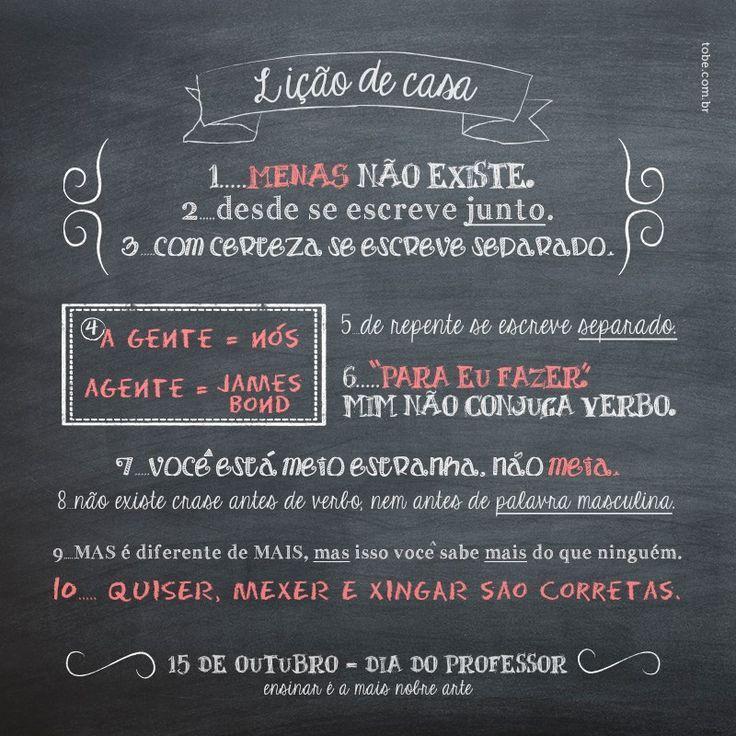 tobe.com.br
Lição de casa
1.....MENAS NÃO EXISTE.
2.....desde se escreve junto.
3.....COM CERTEZA SE ESCREVE SEPARADO.
4 A GENTE = NÓS
AGENTE = JAMES
BOND
5...de repente se escreve separado.
6....."PARA EU FAZER."
MIM NÃO CONJUGA VERBO.
7.....VOCÊ ESTÁ MEIO ESTRANHA, NÃO MEIA.
8....não existe crase antes de verbo, nem antes de palavra masculina.
9....MAS é diferente de MAIS, mas isso você sabe mais do que ninguém.
10..... QUISER, MEXER E XINGAR SAO CORRETAS.
15 DE OUTUBRO = DIA DO PROFESSOR
ensinar é a mais nobre arte